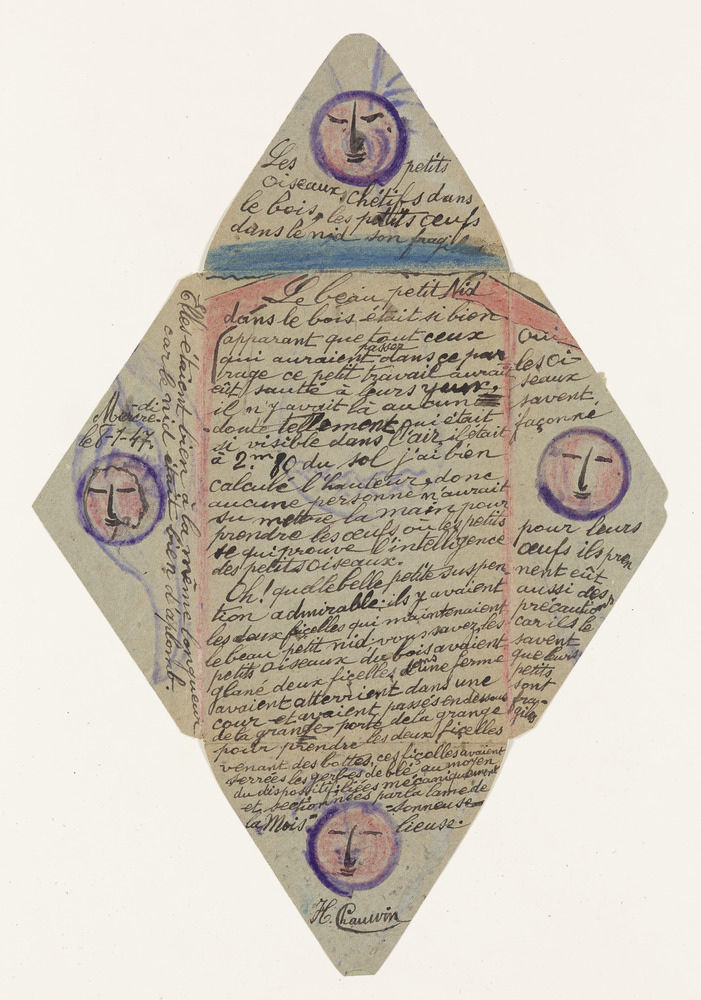 Les petits
oiseaux, chétifs dans
le bois, les petits œufs
dans le nid son fragil
Le beau petit Nid
dans le bois était si bien
apparant que tout ceux
qui auraient passer dans ce par
rage ce petit travail aurait
eût sautté à leurs yeux,
il n'y avait là aucune
doute tellement qui était
si visible dans l'air il était
à 2.m 80 du sol j'ai bien
calculé l'hauteur, donc
aucune personne n'aurait
su mettre la main pour
prendre les œufs où les petits
se qui prouve l'intelligence
des petits oiseaux.
Oh! quelle belle petite suspen
tion admirable: ils y avaient
les deux ficelles qui maintenaient
le beau petit nid: vous savez les
petits oiseaux du bois avaient
glané deux ficelles dans une ferme
avaient atterrient dans une
cour et avaient passés en dessous
de la grande porte de la grange
pour prendre les deux ficelles
venant des bottes, ces ficelles avaient
serrées les gerbes de blé au moyen
du dispositif liées mécaniquement
et sectionnées par la lame de
la Mois- -sonneuse-
lieuse.
H. Chauvin
Oui
les oi-
seaux
savent,
façonné
pour leurs
œufs ils pren
nent eût
aussi des
précautions
car ils le
savent
que leurs
petits
sont
fra-
giles
Elles étaient bien à la même longueur
car le nid était bien d'aplomb.
Mercre-di
le 8-1-47.